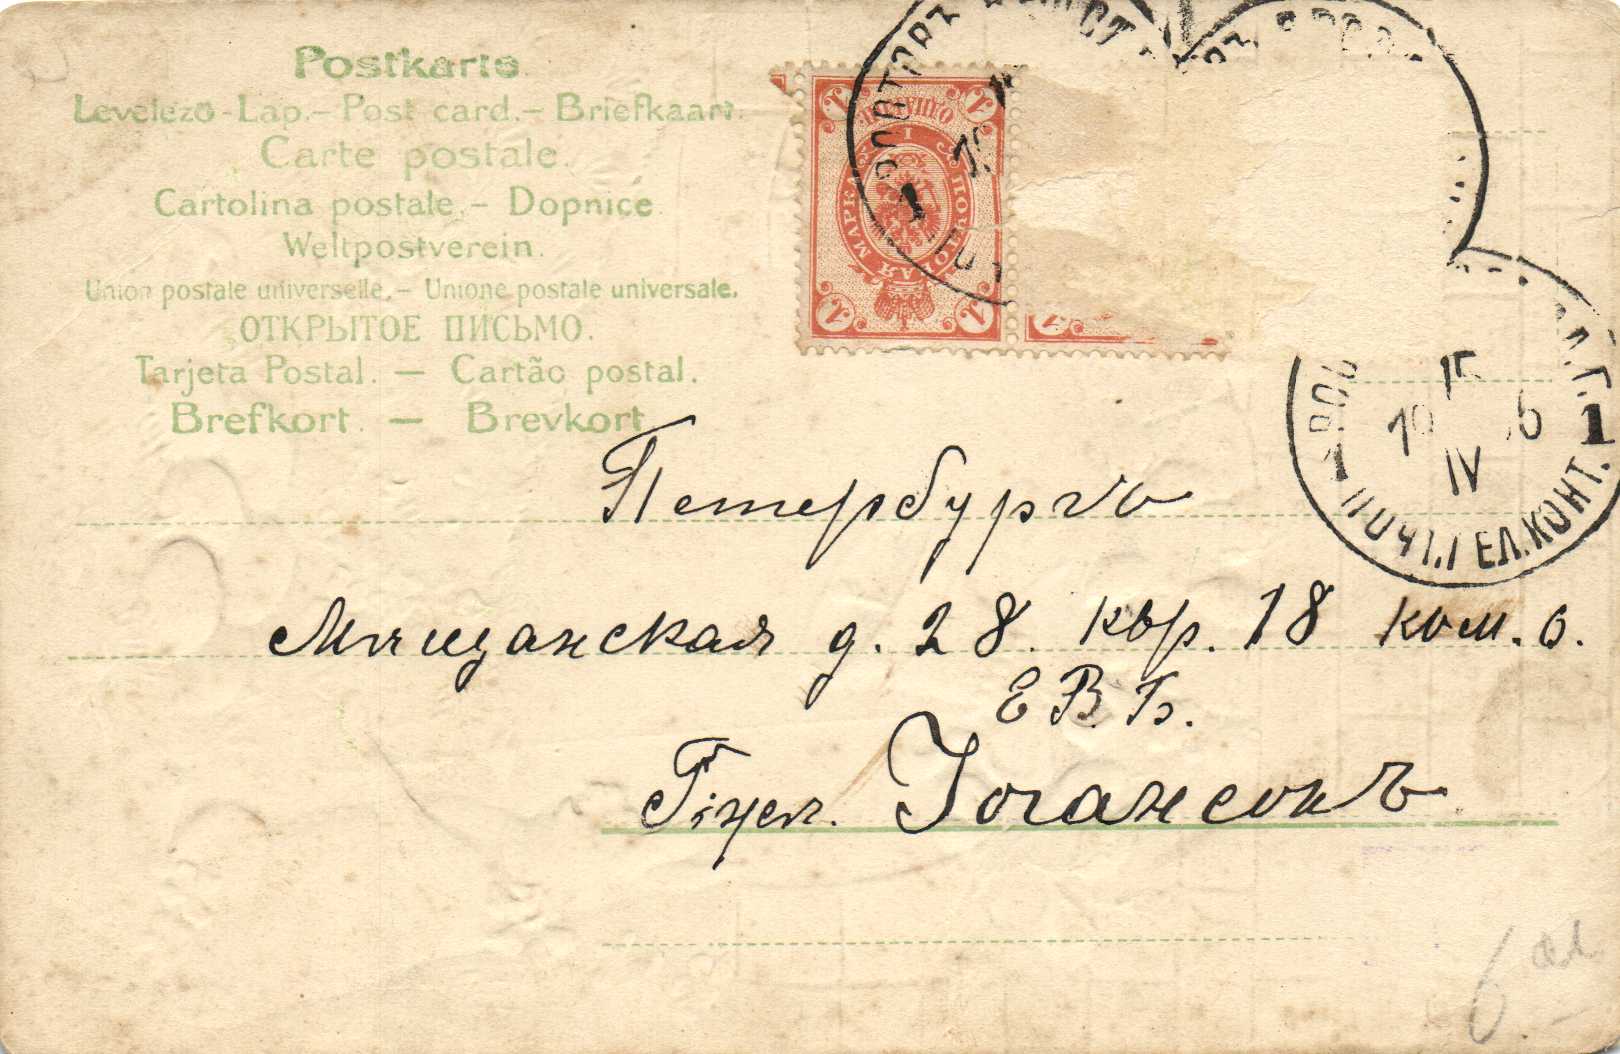 Postkarte.
Levelező-Lap.– Post card.– Briefkaart.
Carte postale.
Cartolina postale.– Dopnice.
Weltpostverein.
Union postale universelle.– Unione postale universale.
ОТКРЫТОЕ ПИСЬМО.
Tarjeta Postal. — Cartão postal.
Brefkort. — Brevkort
1 1
ПОЧТОВАЯ МАРКА
1 1
1
15
10 IV 5
1 ПОЧТ ТЕЛ. КОНТ. 1
Петербургъ
Мѣщанская д. 28. квр. 18 ком. 6.
Е В. Б.
Іогансонъ
6